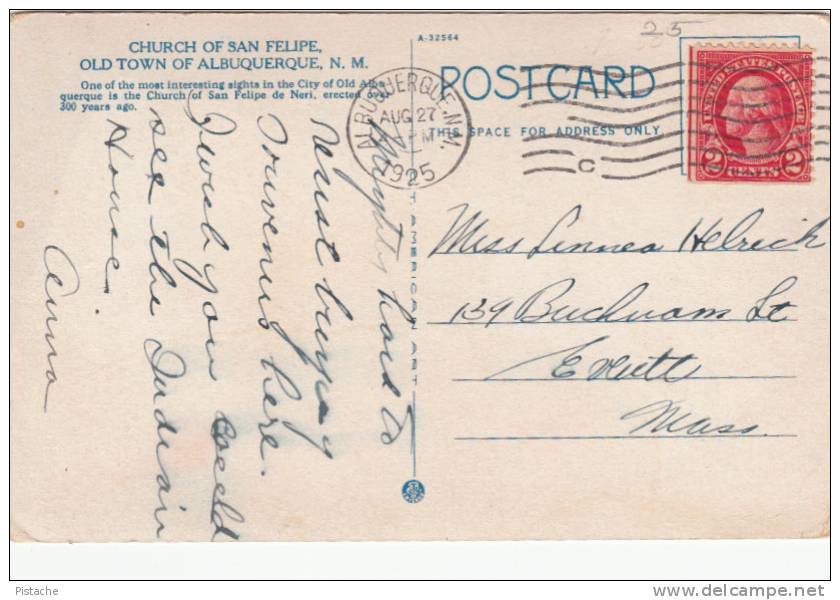 CHURCH OF SAN FELIPE,
OLD TOWN OF ALBUQUERQUE, N. M.
One of the most interesting sights in the City of Old Albu-
querque is the Church of San Felipe de Neri, erected over
300 years ago.
A-32564
POSTCARD
THIS SPACE FOR ADDRESS ONLY
25
ALBUQUERQUE, N.M.
AUG 27
PM
1925
C
UNITED STATES POSTAGE
2 CENTS 2
Mighty hard to
resist buying
souvenirs here.
I wish you could
see the Indian
House.
Anna
Miss Linnea Helrich
139 St
Everett
Mass.
Pistache
delcampe.net